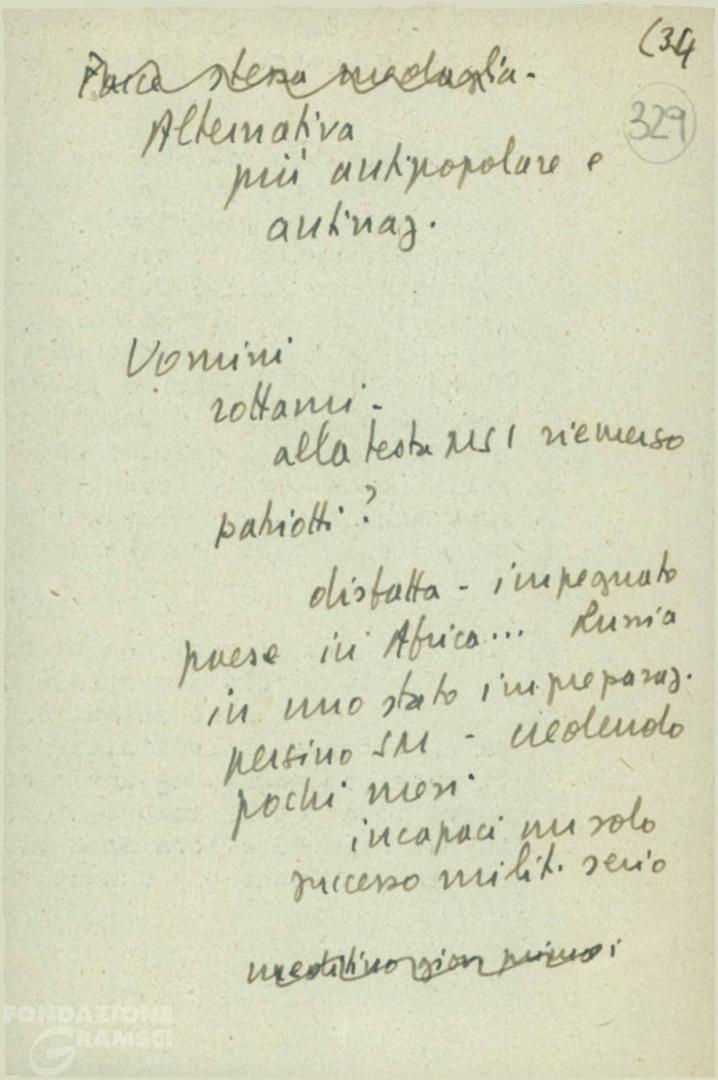 (34
329
Faccia stessa medaglia.
Alternativa
più antipopolare e
antinaz.
Uomini
rottami -
alla testa MSI riemerso
patriotti?
disfatta - impegnato
paese in Africa... Russia
in uno stato impreparaz.
persino SM - credendo
pochi mesi
incapaci un solo
successo milit. serio
FONDAZIONE
GRAMSCI